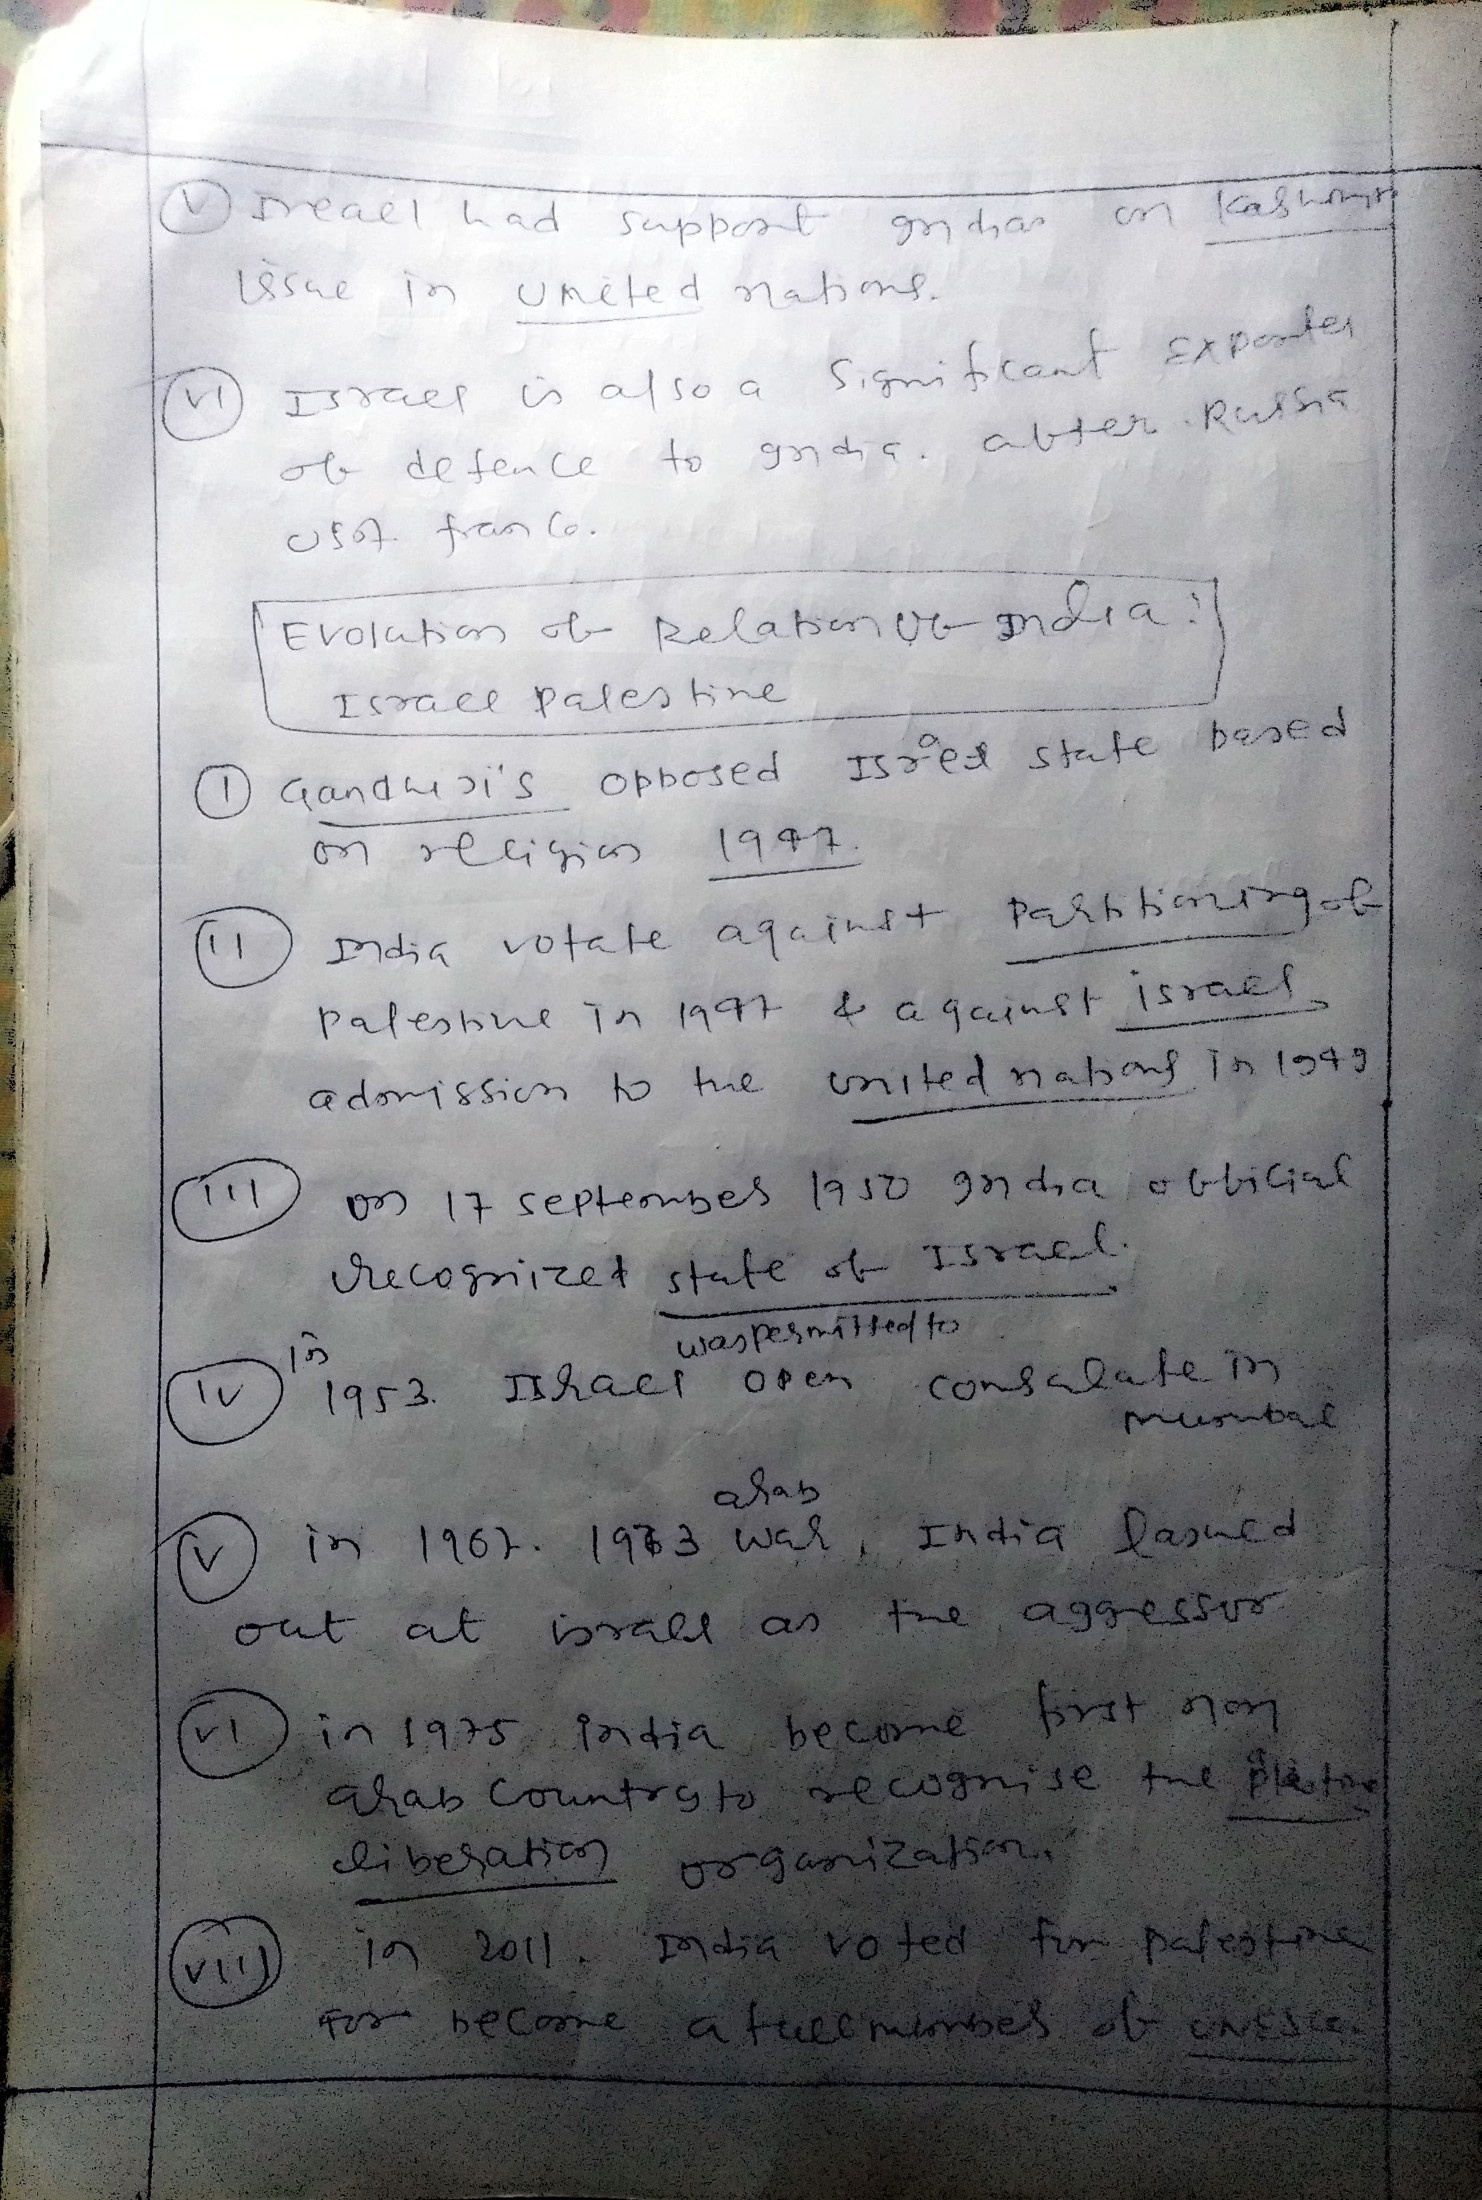 (V) Isreael had support Indias on Kashmir
issue in united nations.
(VI) Israel is also a significant exporter
of defence to India. after Russia
USA france.
Evolution of Relation of India:
Israel Palestine
(I) Gandhi ji's opposed Israel state based
on religion 1947.
(II) India votate against Partitioning of
Palestine in 1947 & against israel
admission to the united nations in 1949
(III) on 17 september 1950 India official
recognized state of Israel.
was permitted to
(IV) in 1953. Israel open consulate in
mumbai
arab
(V) in 1967. 1973 war, India lashed
out at israel as the aggressor
(VI) in 1975 India become first non
arab country to recognise the
liberation organization.
(VIII) in 2011. India voted for palestine
for become a full member of UNESCO.